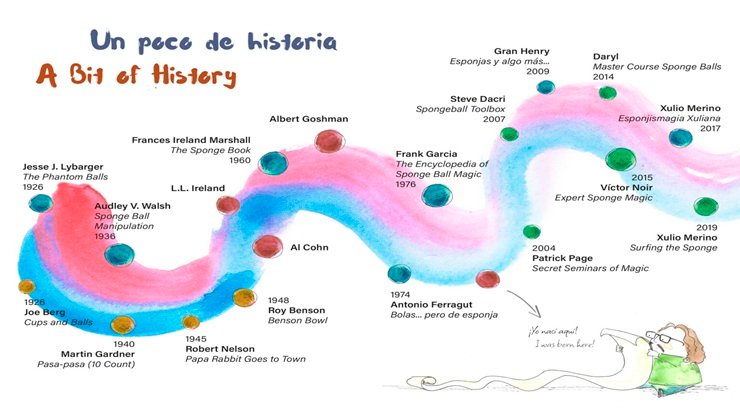 Un poco de historia
A Bit of History
Jesse J. Lybarger
The Phantom Balls
1926
Audley V. Walsh
Sponge Ball
Manipulation
1936
Frances Ireland Marshall
The Sponge Book
1960
Albert Goshman
L.L. Ireland
Al Cohn
1926
Joe Berg
Cups and Balls
Martin Gardner
Pasa-pasa (10 Count)
1940
1945
Robert Nelson
Papa Rabbit Goes to Town
1948
Roy Benson
Benson Bowl
Frank Garcia
The Encyclopedia of
Sponge Ball Magic
1976
1974
Antonio Ferragut
Bolas... pero de esponja
Steve Dacri
Spongeball Toolbox
2007
Gran Henry
Esponjas y algo más...
2009
Daryl
Master Course Sponge Balls
2014
Xulio Merino
Esponjismagia Xuliana
2017
2015
Víctor Noir
Expert Sponge Magic
2004
Patrick Page
Secret Seminars of Magic
2019
Xulio Merino
Surfing the Sponge
¡Yo nací aquí!
I was born here!